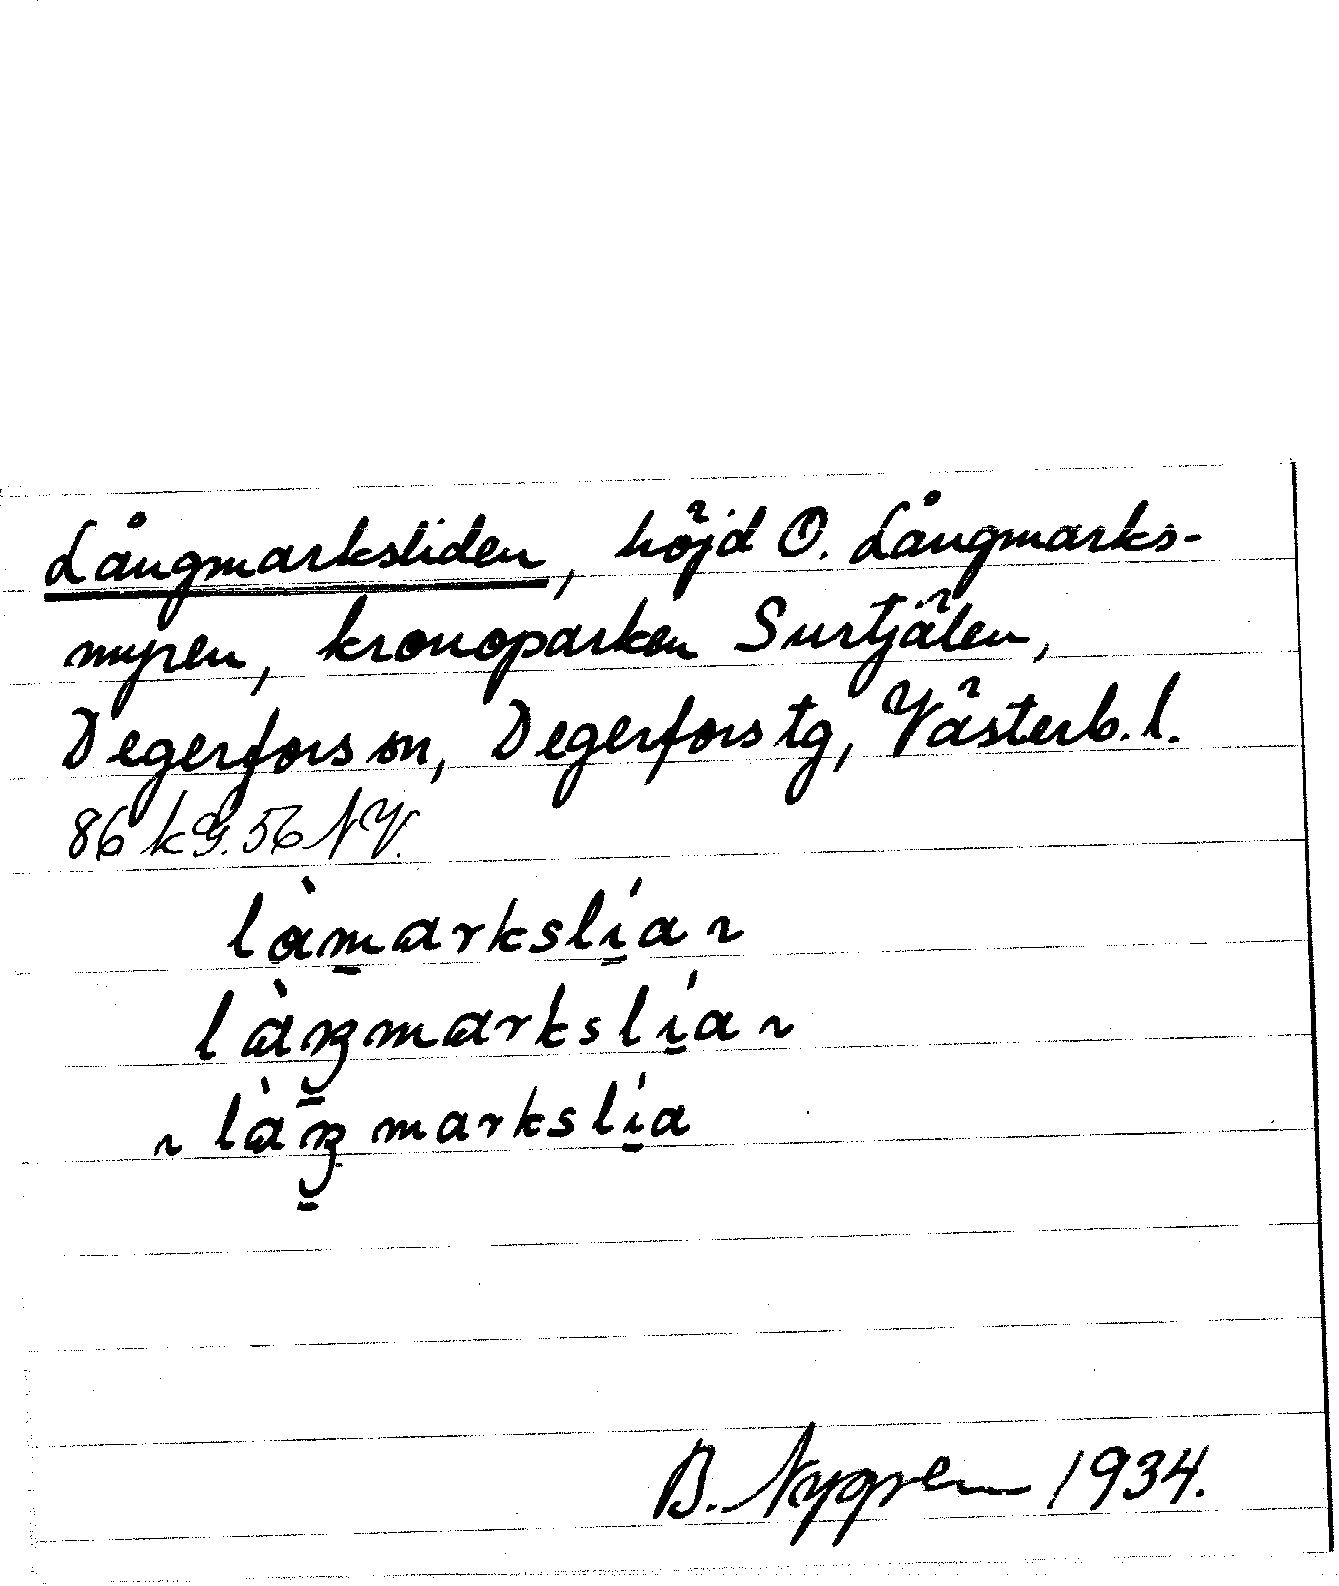 Långmarksliden, höjd O. Långmarks-
myren, kronoparken Surtjälen,
Degerfors sn, Degerfors tg, Västerb. l.
86 kg. 56 NV.
làm̱arkslí̱a ~
làŋ̱markslí̱a ~
~ làŋ̱markslí̱a
B. Nygren 1934.